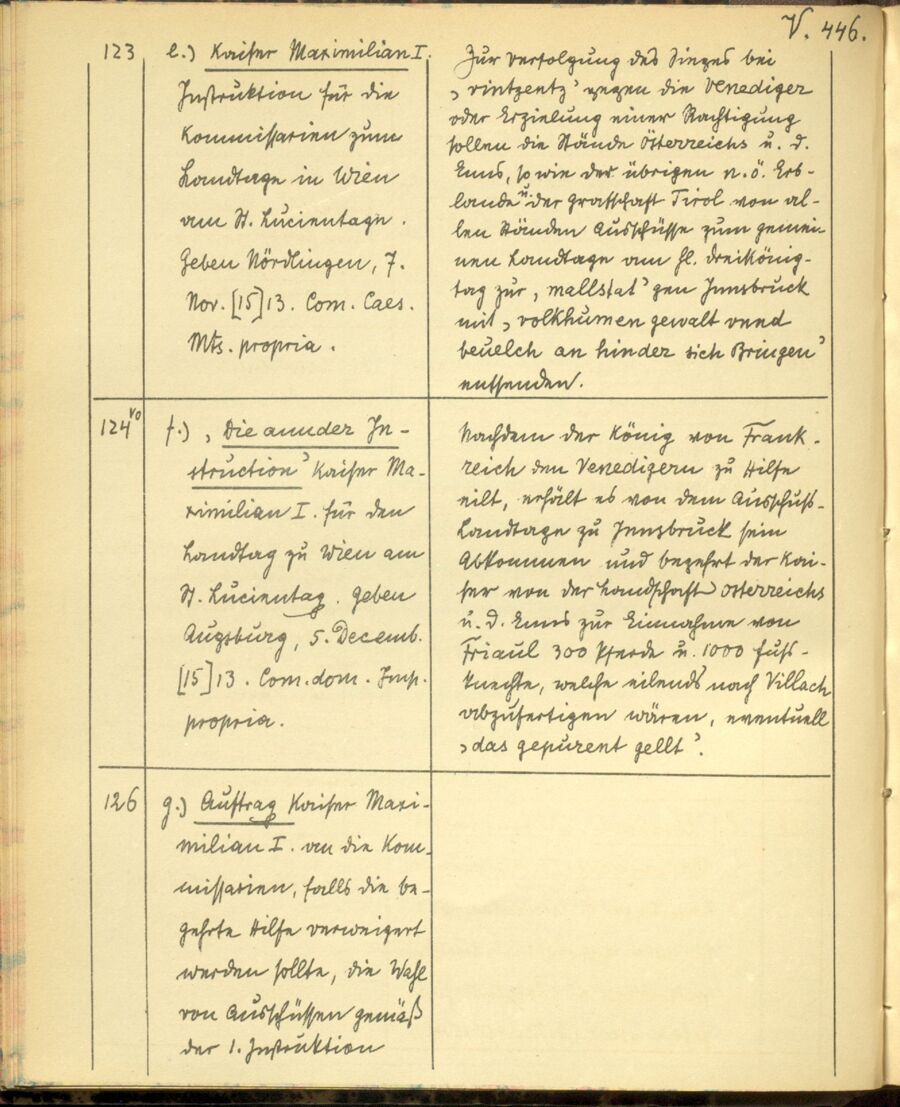 V. 446.
123
e.) Kaiser Maximilian I.
Instruktion für die
Kommissarien zum
Landtage in Wien
am St. Lucientage.
Geben Nördlingen, 7.
Nov. [15]13. Com. Caes.
Mts. propria.
Zur Verfolgung des Sieges bei
‚vintzentz’ gegen die Venediger
oder Erzielung einer Rachtigung
sollen die Stände Österreichs u. d.
Enns, so wie der übrigen n. ö. Erb-
lande u. der Grafschaft Tirol von al-
len Ständen Ausschüsse zum gemei-
nen Landtage am hl. Dreikönig-
tag zur ‚mallstat’ gen Innsbruck
mit ‚volkhumen gewalt vnnd
beuelch an hinder sich Bringen’
entsenden.
124vo
f.) ‚Die annder In-
struction’ Kaiser Ma-
ximilian I. für den
Landtag zu Wien am
St. Lucientag. Geben
Augsburg, 5. Decemb.
[15]13. Com. dom. Imp.
propria.
Nachdem der König von Frank-
reich den Venedigern zu Hilfe
eilt, erhält es von dem Ausschuss-
Landtage zu Innsbruck sein
Abkommen und begehrt der Kai-
ser von der Landschaft Österreichs
u. d. Enns zur Einnahme von
Friaul 300 Pferde u. 1000 Fuss-
knechte, welche eilends nach Villach
abzufertigen wären, eventuell
‚das gepürent gellt’.
126
g.) Auftrag Kaiser Maxi-
milian I. an die Kom-
missarien, falls die be-
gehrte Hilfe verweigert
werden sollte, die Wahl
von Ausschüssen gemäß
der 1. Instruktion